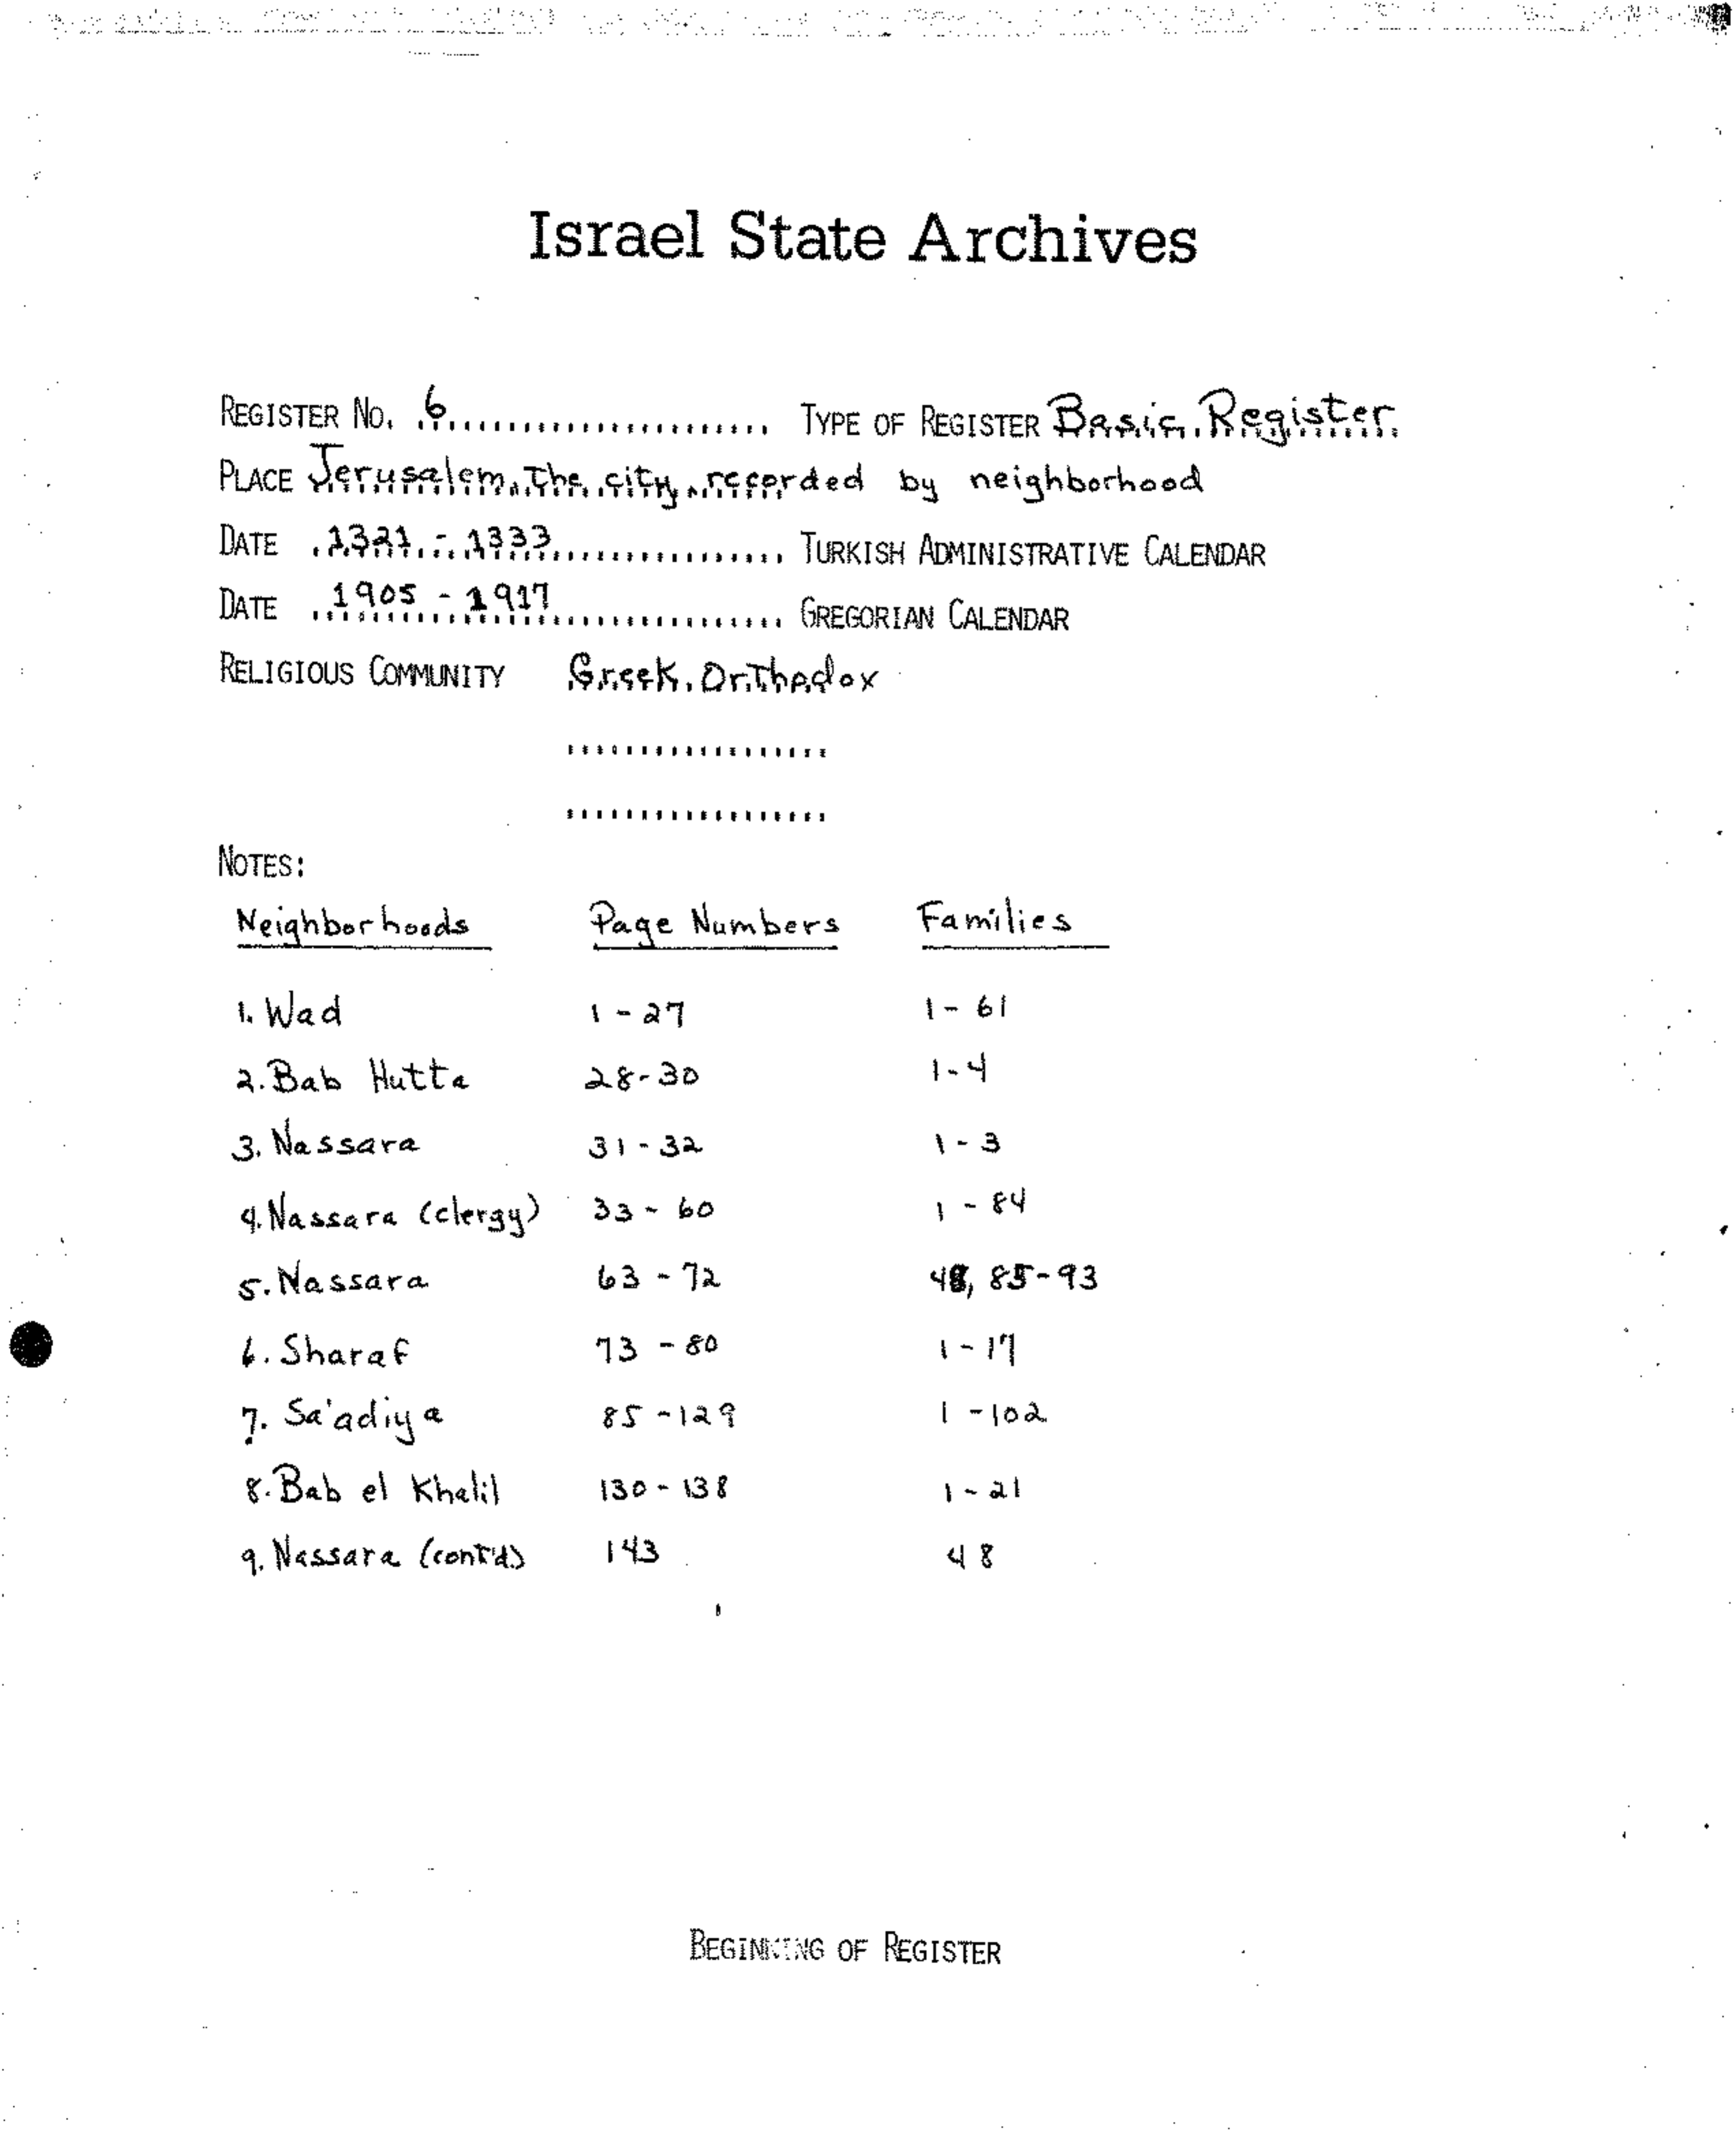 Israel State Archives
REGISTER NO. 6 TYPE OF REGISTER Basic Register
PLACE Jerusalem, The city, recorded by neighborhood
DATE 1321 - 1333 TURKISH ADMINISTRATIVE CALENDAR
DATE 1905 - 1917 GREGORIAN CALENDAR
RELIGIOUS COMMUNITY Greek Orthodox
NOTES:
Neighborhoods Page Numbers Families
1. Wad 1 - 27 1 - 61
2. Bab Hutta 28-30 1-4
3. Nassara 31 - 32 1 - 3
4. Nassara (clergy) 33 - 60 1 - 84
5. Nassara 63 - 72 48, 85-93
6. Sharaf 73 - 80 1 - 17
7. Sa'adiya 85 - 129 1 - 102
8. Bab el Khalil 130 - 138 1 - 21
9. Nassara (cont'd) 143 48
BEGINNING OF REGISTER